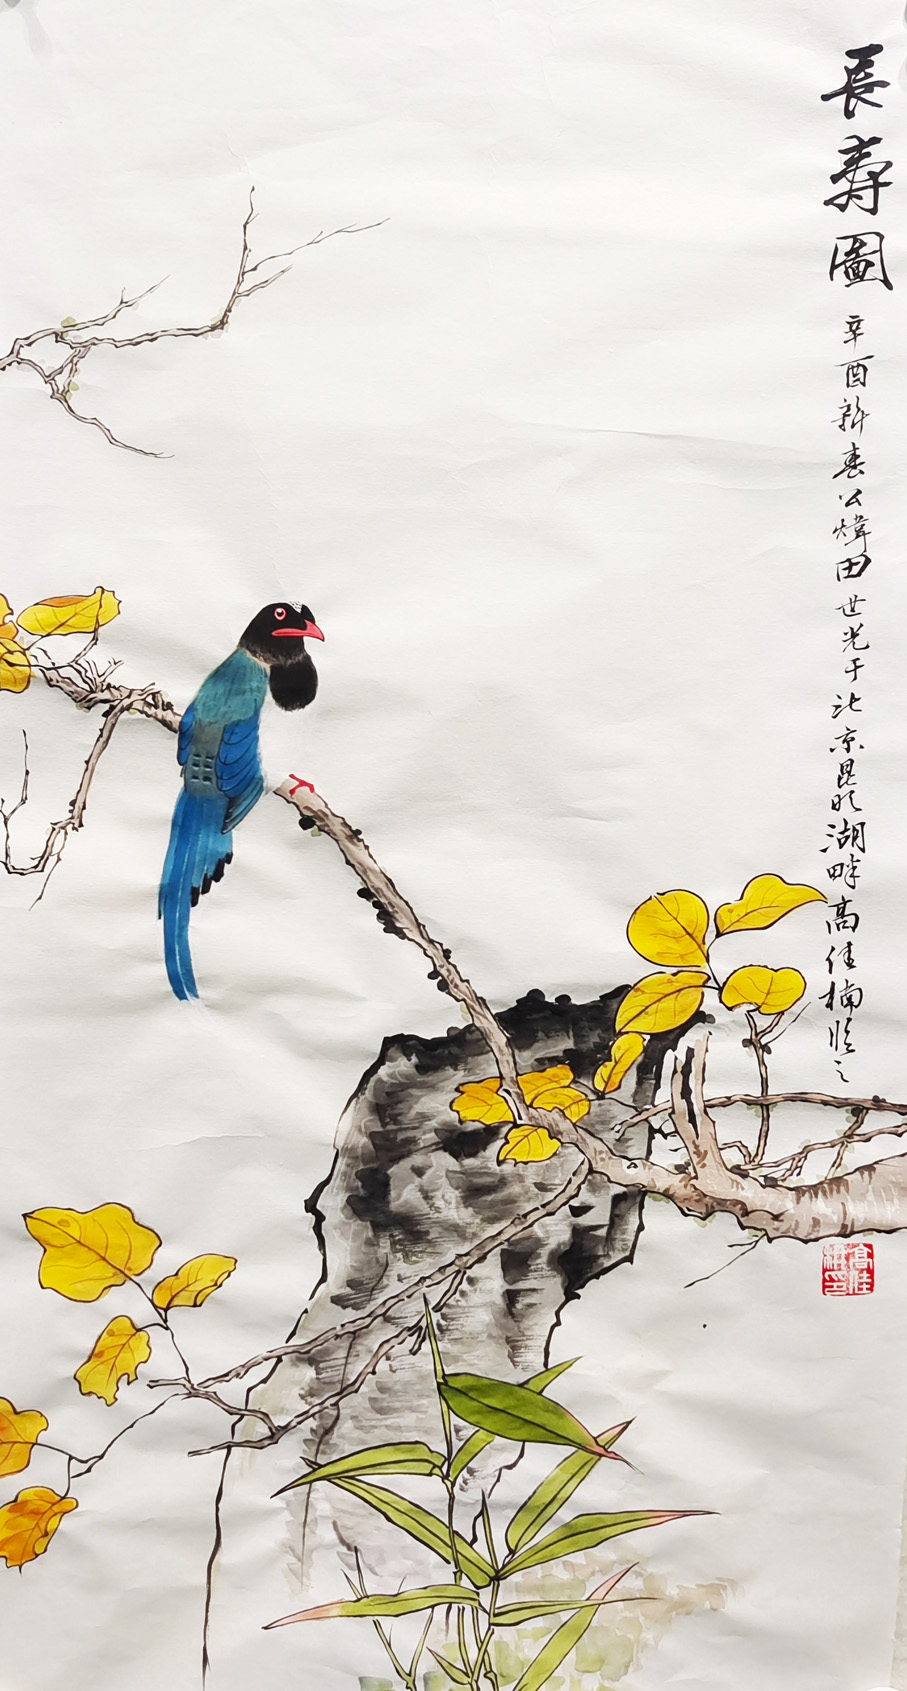 長壽圖
辛酉新春公煒田世光于北京昆明湖畔高佳楠臨之